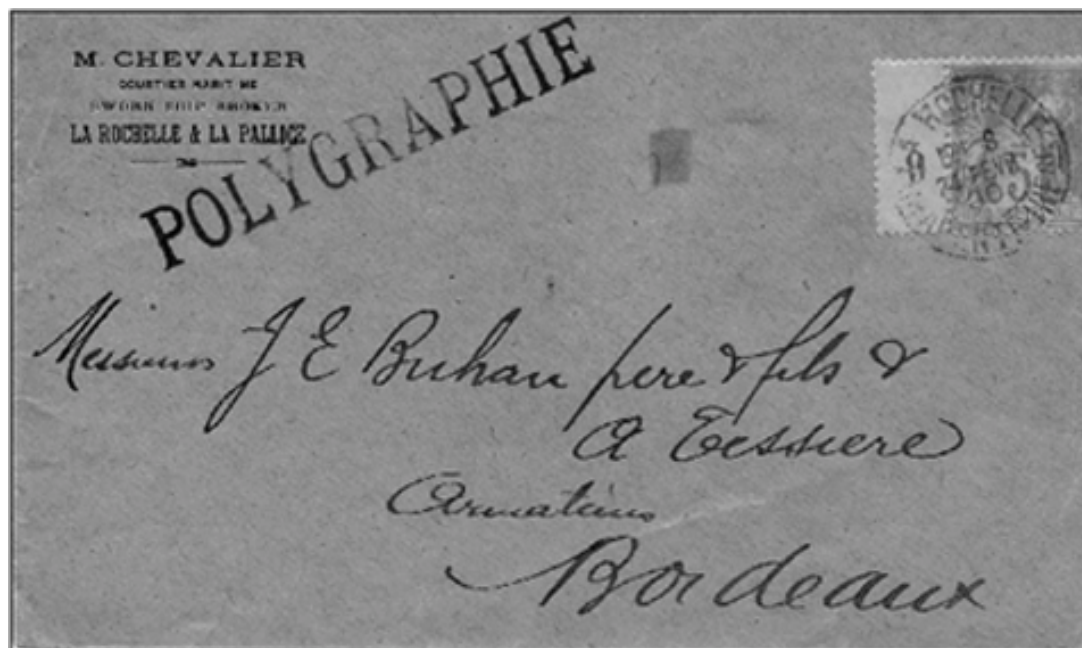 M. CHEVALIER
COURTIER MARITIME
SWORN SHIP BROKER
LA ROCHELLE & LA PALLICE
POLYGRAPHIE
LA ROCHELLE
Messieurs J E Buhan pere & fils &
A Teissiere
Armateurs
Bordeaux